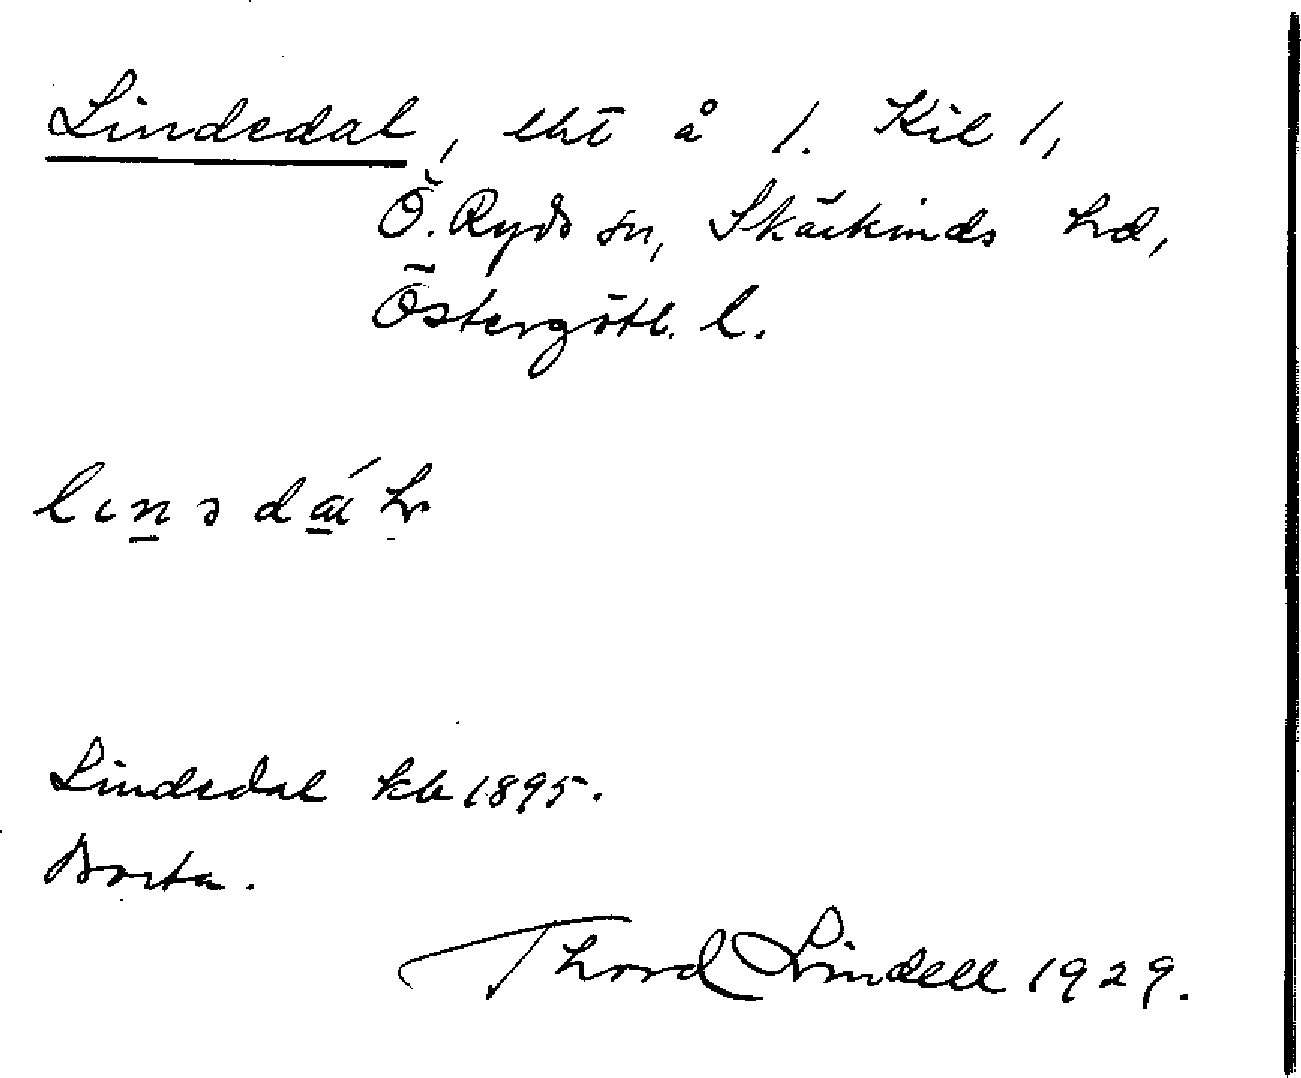 Lindedal, lht å 1. Kil 1,
Ö. Ryds sn, Skärkinds hd,
Östergötl. l.
Lindedal kb 1895.
Borta.
Thord Lindell 1929.